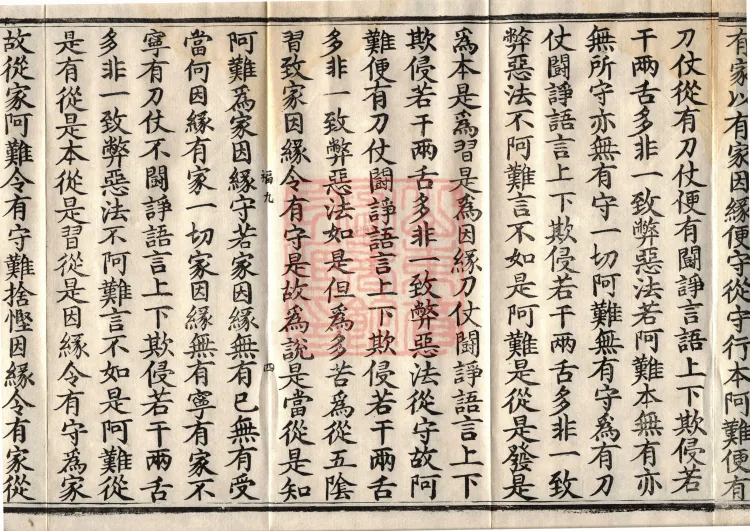 有家以有家因緣便守從守行本阿難便有
刀仗從有刀仗便有鬪諍言語上下欺侵若
干兩舌多非一致弊惡法若阿難本無有亦
無所守亦無有守一切阿難無有守為有刀
仗鬪諍語言上下欺侵若干兩舌多非一致
弊惡法不阿難言不如是阿難是從是發是
為本是為習是為因緣刀仗鬪諍語言上下
欺侵若干兩舌多非一致弊惡法從守故阿
難便有刀仗鬪諍語言上下欺侵若干兩舌
多非一致弊惡法如是但為多苦為從五陰
習致家因緣令有守是故為說是當從是知
福九
四
阿難為家因緣守若家因緣無有已無有受
當何因緣有家一切家因緣無有寧有家不
寧有刀仗不鬪諍語言上下欺侵若干兩舌
多非一致弊惡法不阿難言不如是阿難從
是有從是本從是習從是因緣令有守為家
故從家阿難令有守難捨慳因緣令有家從